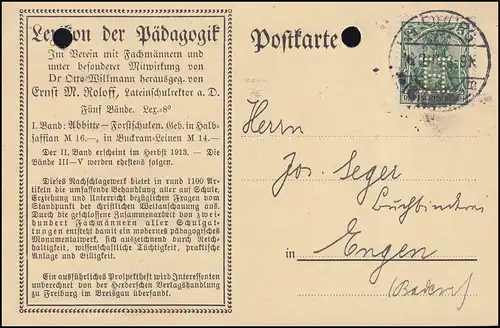 Lexikon der Pädagogik
Im Verein mit Fachmännern und
unter besonderer Mitwirkung von
Dr Otto Willmann herausgeg. von
Ernst M. Roloff, Lateinschulrektor a. D.
Fünf Bände. Lex.-8°
I. Band: Abbitte – Forstschulen. Geb. in Halb-
saffian M 16.—, in Buckram-Leinen M 14.—
Der II. Band erscheint im Herbst 1913. — Die
Bände III—V werden ehestens folgen.
Dieses Nachschlagewerk bietet in rund 1100 Ar-
tikeln die umfassende Behandlung aller auf Schule,
Erziehung und Unterricht bezüglichen Fragen vom
Standpunkt der christlichen Weltanschauung aus.
Durch die geschlossene Zusammenarbeit von zwei-
hundert Fachmännern aller Schulgat-
tungen entsteht damit ein modernes pädagogisches
Monumentalwerk, sich auszeichnend durch Reich-
haltigkeit, wissenschaftliche Tüchtigkeit, praktische
Anlage und Billigkeit.
Ein ausführliches Prospektheft wird Interessenten
unberechnet von der Herderschen Verlagshandlung
zu Freiburg im Breisgau übersandt.
Postkarte
Herrn
Jos. Seger
Buchbinderei
in Engen
(Baden)